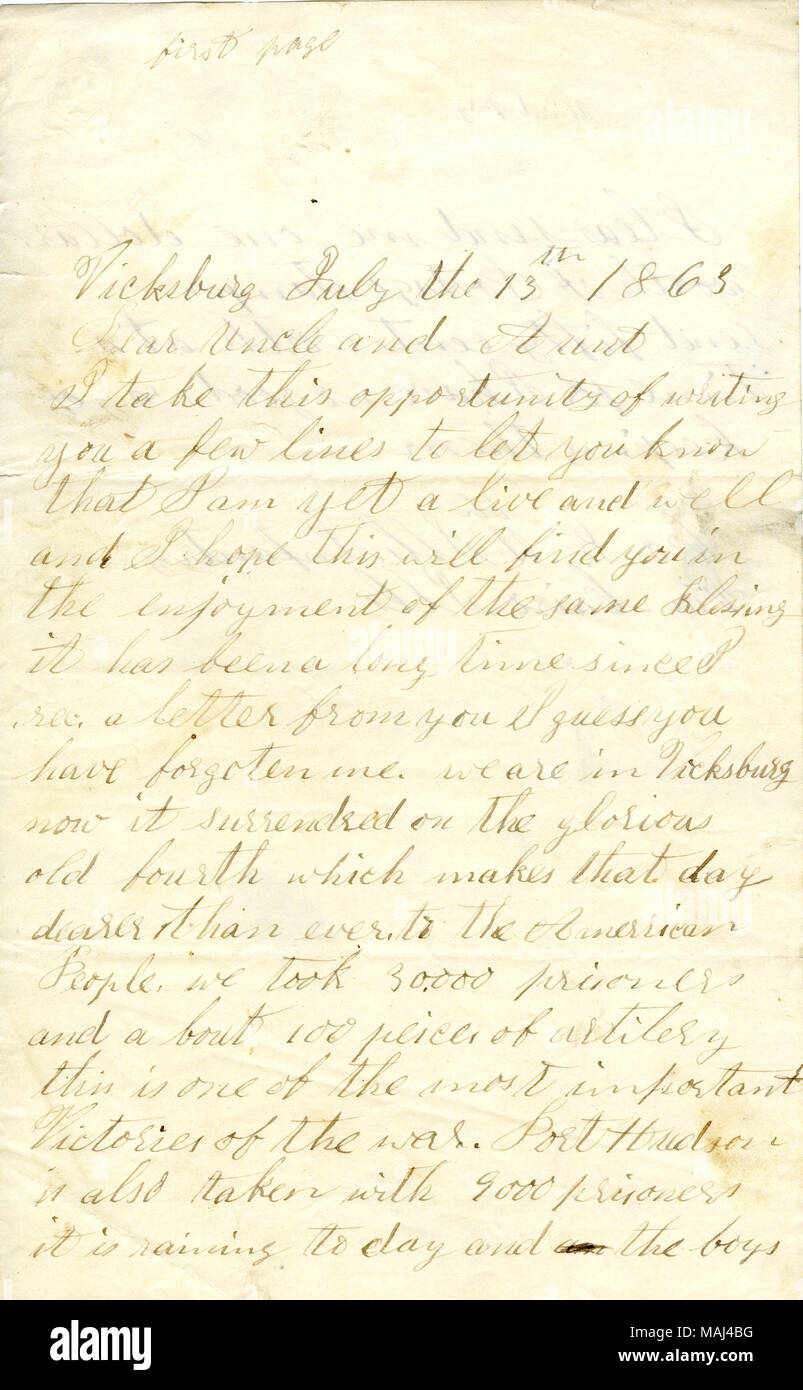 first page
Vicksburg July the 13th 1863
Dear Uncle and Aunt
I take this opportunity of writing
you a few lines to let you know
that I am yet a live and well
and I hope this will find you in
the enjoyment of the same Blissing
it has been a long time since I
rec. a letter from you I guess you
have forgoten me. we are in Vicksburg
now it surrendred on the glorious
old fourth which makes that day
dearer than ever to the Amerrican
People. we took 30.000 prisoners
and a bout 100 peices of artilery
this is one of the most important
Victories of the war. Port Hudson
is also taken with 9000 prisoners
it is raining to day and the boys
alamy
Image ID: MAJ4BG
www.alamy.com